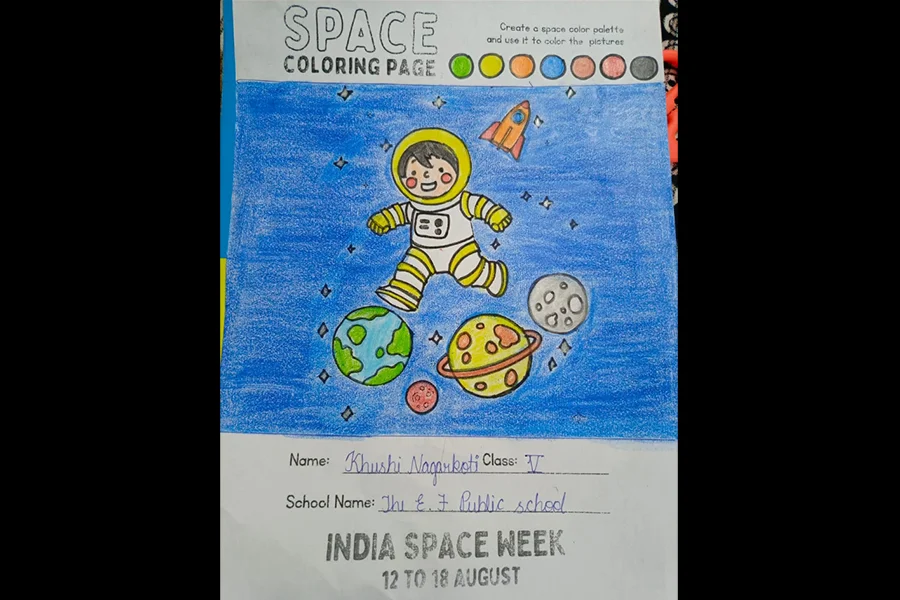 SPACE
COLORING PAGE
Create a space color palette
and use it to color the pictures
Name: Khushi Nagarkoti Class: V
School Name: The E. F Public school
INDIA SPACE WEEK
12 TO 18 AUGUST